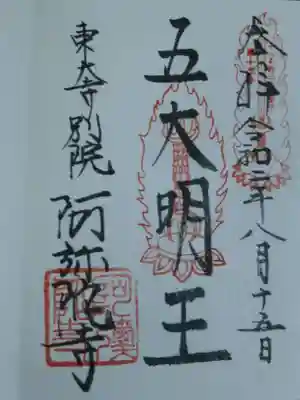 奉拝 令和二年八月十五日
五大明王
東大寺別院 阿弥陀寺